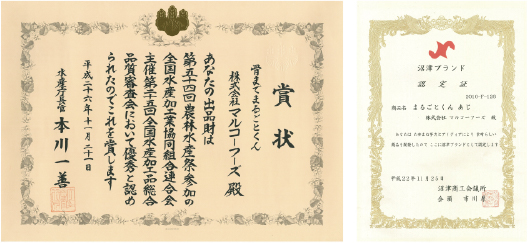 賞状
骨まてまるごとくん
株式会社マルコーフーズ 殿
あなたの出品財は
第五十四回農林水産祭参加の
全国水産加工業協同組合連合会
主催第二十五回全国水産加工品総合
品質審査会において優秀と認め
られたのでこれを賞します
平成二十六年十一月二十一日
水産庁長官 本川一善
沼津ブランド
認定証
2010-F-120
商品名 まるごとくん あじ
株式会社 マルコーフーズ 殿
平成22年11月25日
沼津商工会議所
会頭 市川厚